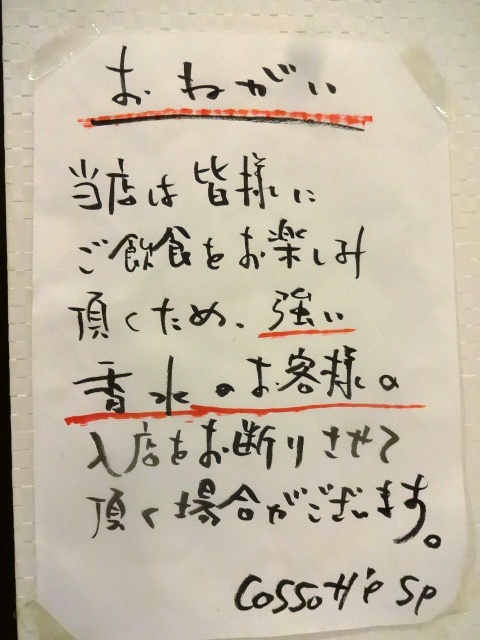 おねがい
当店は皆様に
ご飲食をお楽しみ
頂くため、強い
香水のお客様の
入店をお断りさせて
頂く場合がございます。
cossott'e sp